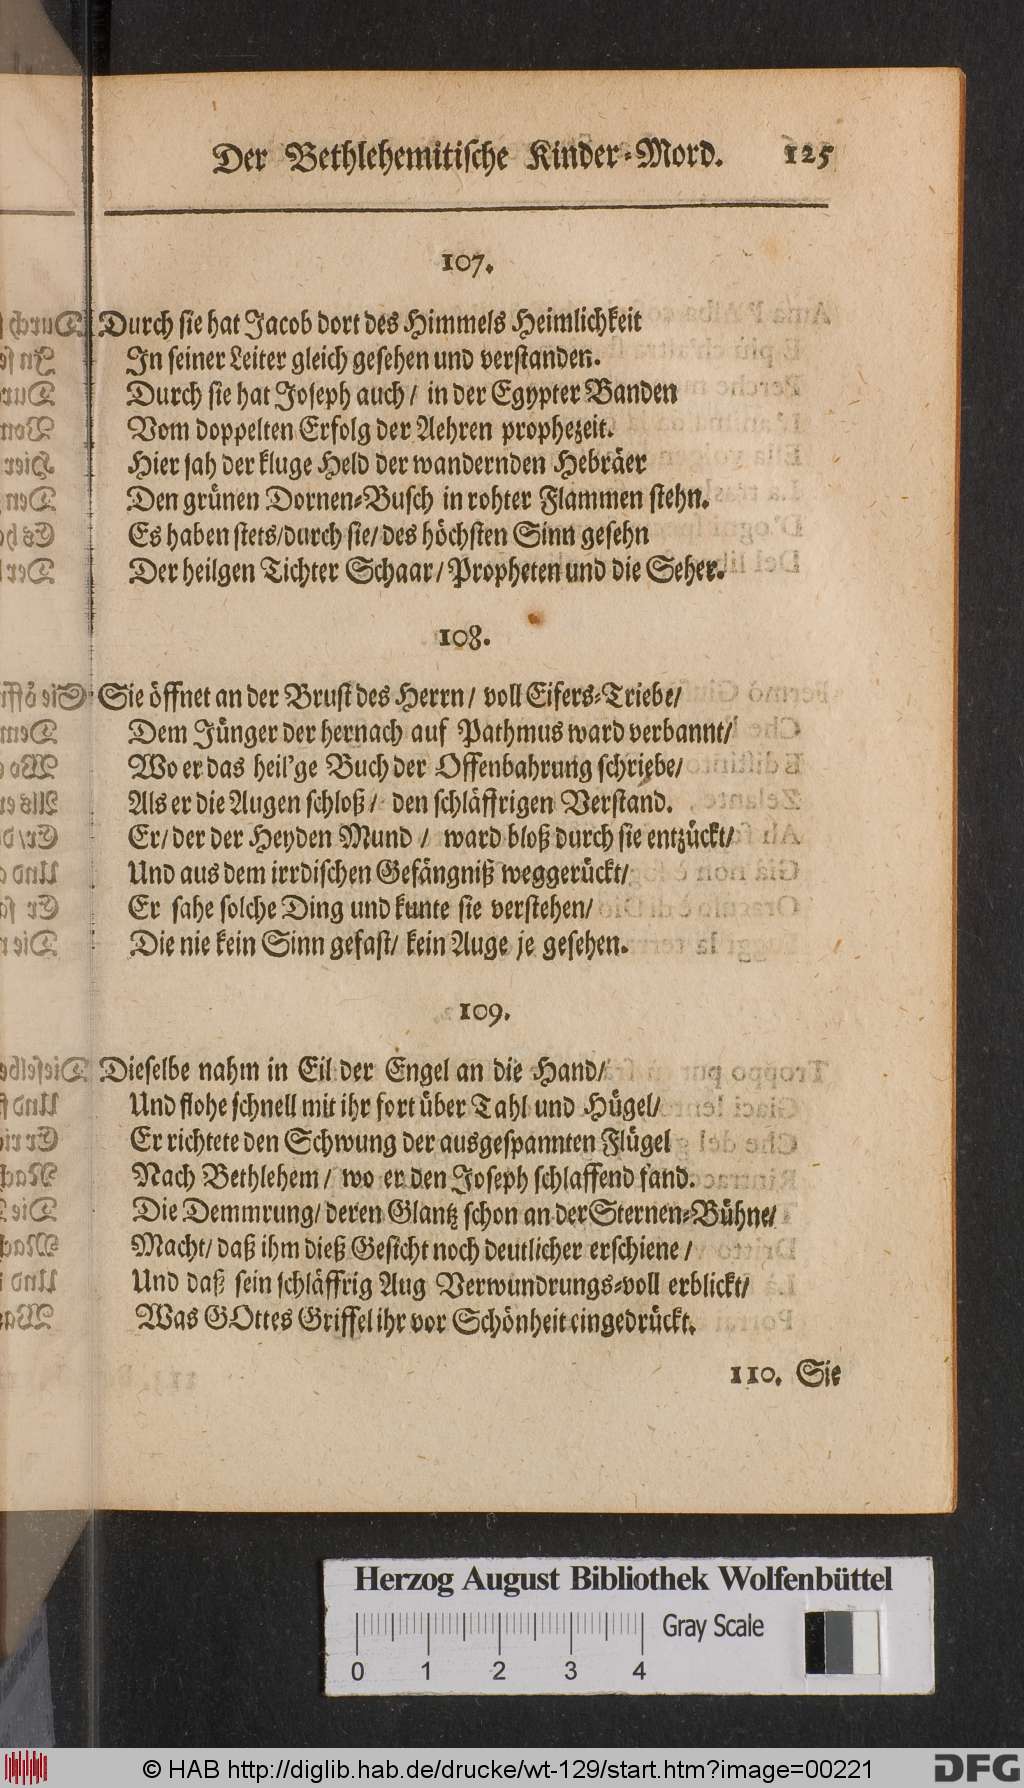 Der Bethlehemitische Kinder-Mord. 125
107.
Durch sie hat Jacob dort des Himmels Heimlichkeit
In seiner Leiter gleich gesehen und verstanden.
Durch sie hat Joseph auch / in der Egypter Banden
Vom doppelten Erfolg der Aehren prophezeit.
Hier sah der kluge Held der wandernden Hebräer
Den grünen Dornen-Busch in rohter Flammen stehn.
Es haben stets / durch sie / des höchsten Sinn gesehn
Der heilgen Tichter Schaar / Propheten und die Seher.
108.
Sie öffnet an der Brust des Herrn / voll Eifers-Triebe /
Dem Jünger der hernach auf Pathmus ward verbannt /
Wo er das heil'ge Buch der Offenbahrung schriebe /
Als er die Augen schloß / den schläffrigen Verstand.
Er / der der Heyden Mund / ward bloß durch sie entzückt /
Und aus dem irrdischen Gefängniß weggerückt /
Er sahe solche Ding und kunte sie verstehen /
Die nie kein Sinn gefast / kein Auge je gesehen.
109.
Dieselbe nahm in Eil der Engel an die Hand /
Und flohe schnell mit ihr fort über Tahl und Hügel /
Er richtete den Schwung der ausgespannten Flügel
Nach Bethlehem / wo er den Joseph schlaffend fand.
Die Demmrung / deren Glantz schon an der Sternen-Bühne /
Macht / daß ihm dieß Gesicht noch deutlicher erschiene /
Und daß sein schläffrig Aug Verwundrungs-voll erblickt /
Was GOttes Griffel ihr vor Schönheit eingedrückt.
110. Sie
Herzog August Bibliothek Wolfenbüttel
Gray Scale
0 1 2 3 4
© HAB http://diglib.hab.de/drucke/wt-129/start.htm?image=00221
DFG